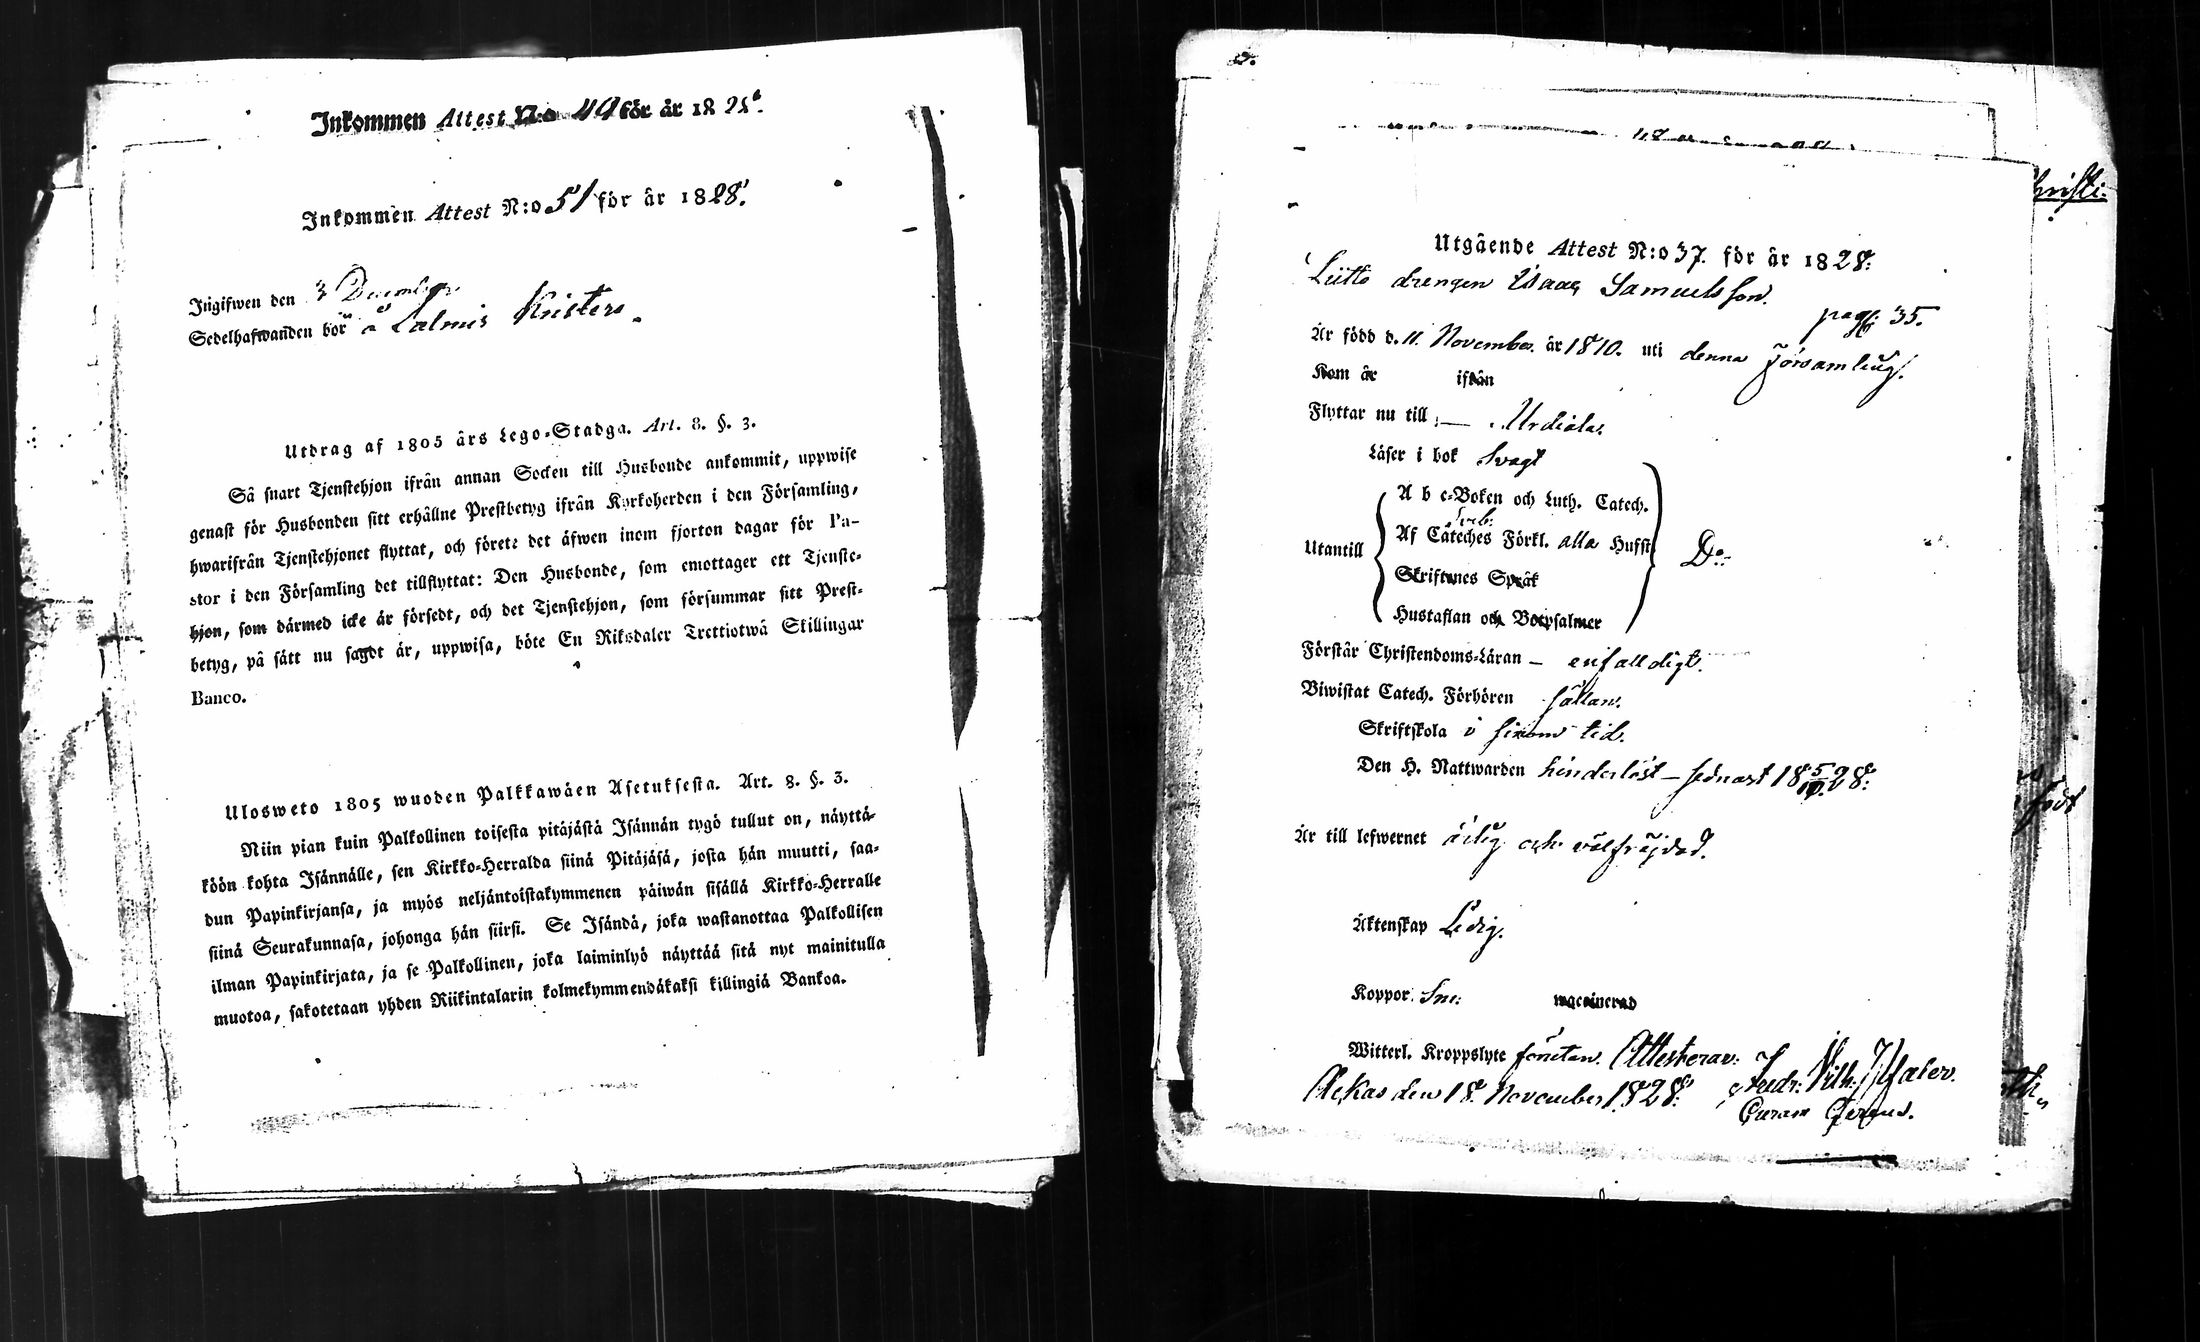 Inkommen Attest N:o 49 för år 1828.
Inkommen Attest N:o 51 för år 1828.
Ingifwen den 3 December
Sedelhafwanden bor å Salmis Kristers.
Utdrag af 1805 års Lego-Stadga. Art. 8. §. 3.
Så snart Tjenstehjon ifrån annan Socken till Husbonde ankommit, uppwise
genast för Husbonden sitt erhållne Prestbetyg ifrån Kyrkoherden i den Församling,
hwarifrån Tjenstehjonet flyttat, och förete det äfwen inom fjorton dagar för Pa-
stor i den Församling det tillflyttat: Den Husbonde, som emottager ett Tjenste-
hjon, som därmed icke är försedt, och det Tjenstehjon, som försummar sitt Prest-
betyg, på sätt nu sagdt är, uppwisa, böte En Riksdaler Trettiotwå Skillingar
Banco.
Ulosweto 1805 wuoden Palkkawäen Asetuksesta. Art. 8. §. 3.
Niin pian kuin Palkollinen toisesta pitäjästä Isännän tygö tullut on, näyttä-
köön kohta Isännälle, sen Kirkko-Herralda siinä Pitäjäsä, josta hän muutti, saa-
dun Papinkirjansa, ja myös neljäntoistakymmenen päiwän sisällä Kirkko-Herralle
siinä Seurakunnasa, johonga hän siirsi. Se Isändä, joka wastanottaa Palkollisen
ilman Papinkirjata, ja se Palkollinen, joka laiminlyö näyttää sitä nyt mainitulla
muotoa, sakotetaan yhden Riikintalarin kolmekymmendäkaksi killingiä Bankoa.
Utgående Attest N:o 37. för år 1828.
drengen Isaac Samuelsson.
pag: 35.
Är född d. 11. November. år 1810. uti denna Församling.
Kom år ifrån
Flyttar nu till — Urdiala.
Läser i bok Svagt
A b c-Boken och Luth. Catech.
Sveb:
Utantill Af Cateches Förkl. alla Hufst. D:o
Skriftenes Språk
Hustaflan och Botpsalmer
Förstår Christendoms-Läran – enfalldigt.
Biwistat Catech. Förhören sällan.
Skriftskola i sinom tid.
Den H. Nattwarden hinderlöst – sednast 18 5/10 28.
Är till lefwernet ärlig och välfrägdad.
Äktenskap Ledig.
Koppor waccinerad
Witterl. Kroppslyte förutan. Attesterar:
Ackas den 18. November 1828. Fredr: Vilh:
Curam Gerens.